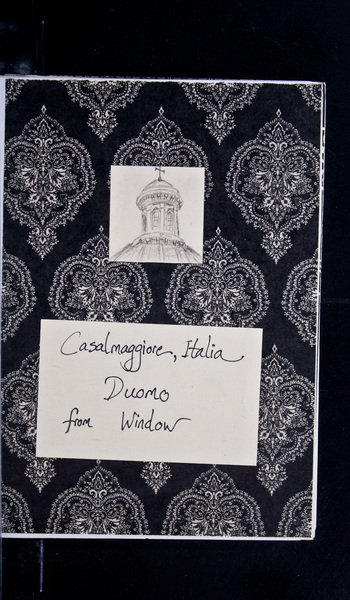 Casalmaggiore, Italia
Duomo
from Window